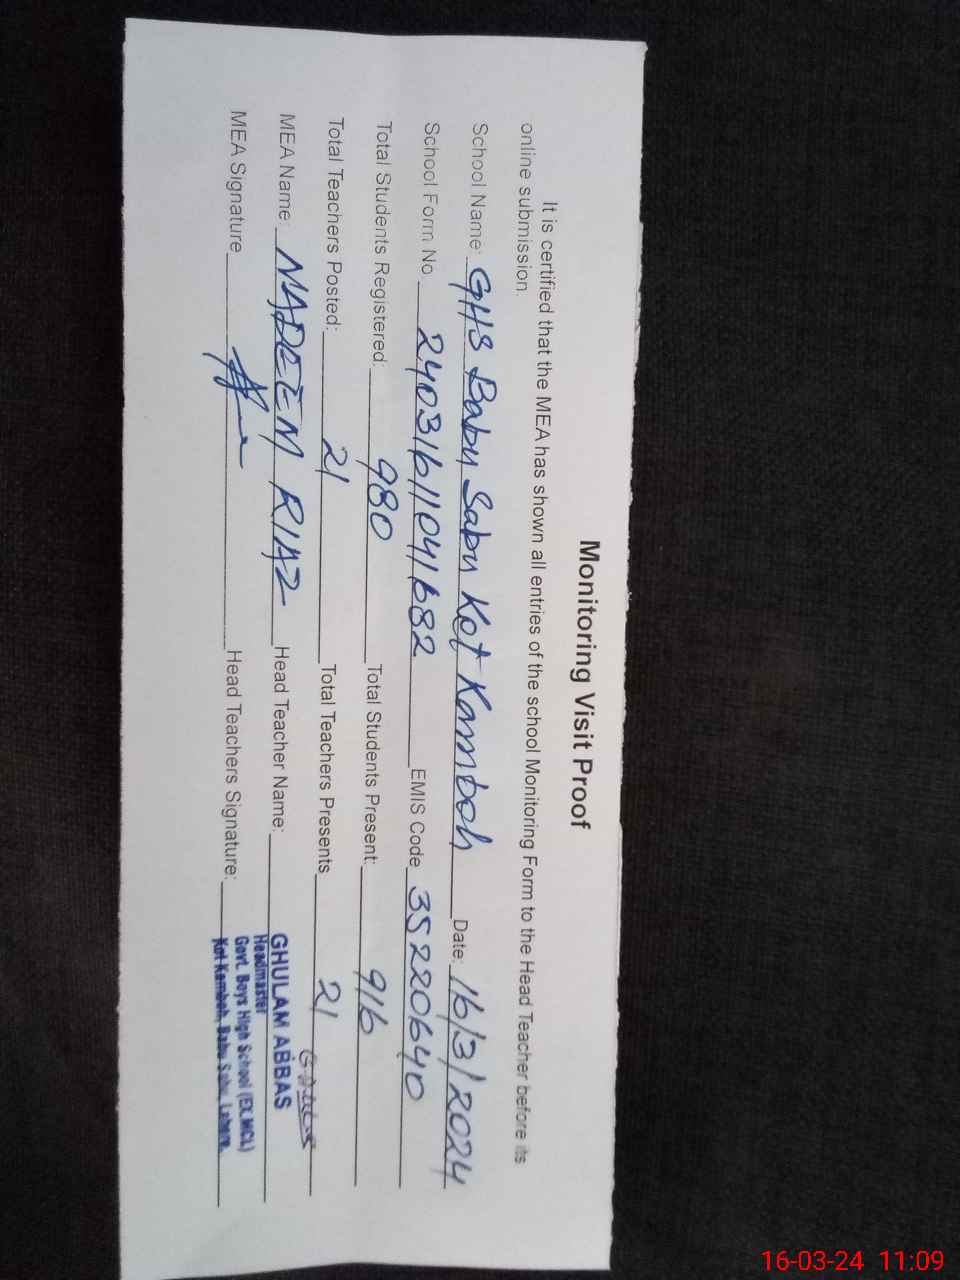 Monitoring Visit Proof
It is certified that the MEA has shown all entries of the school Monitoring Form to the Head Teacher before its
online submission.
School Name: GHS Babu Sabu Kot Kamboh Date: 16/3/2024
School Form No 24031611041682 EMIS Code 35220640
Total Students Registered: 980 Total Students Present: 916
Total Teachers Posted: 21 Total Teachers Presents 21
MEA Name: NADEEM RIAZ Head Teacher Name: GHULAM ABBAS
Headmaster
MEA Signature Head Teachers Signature: Govt. Boys High School (EX.MCL)
Kot Kamboh, Babu Sabu, Lahore.
16-03-24 11:09